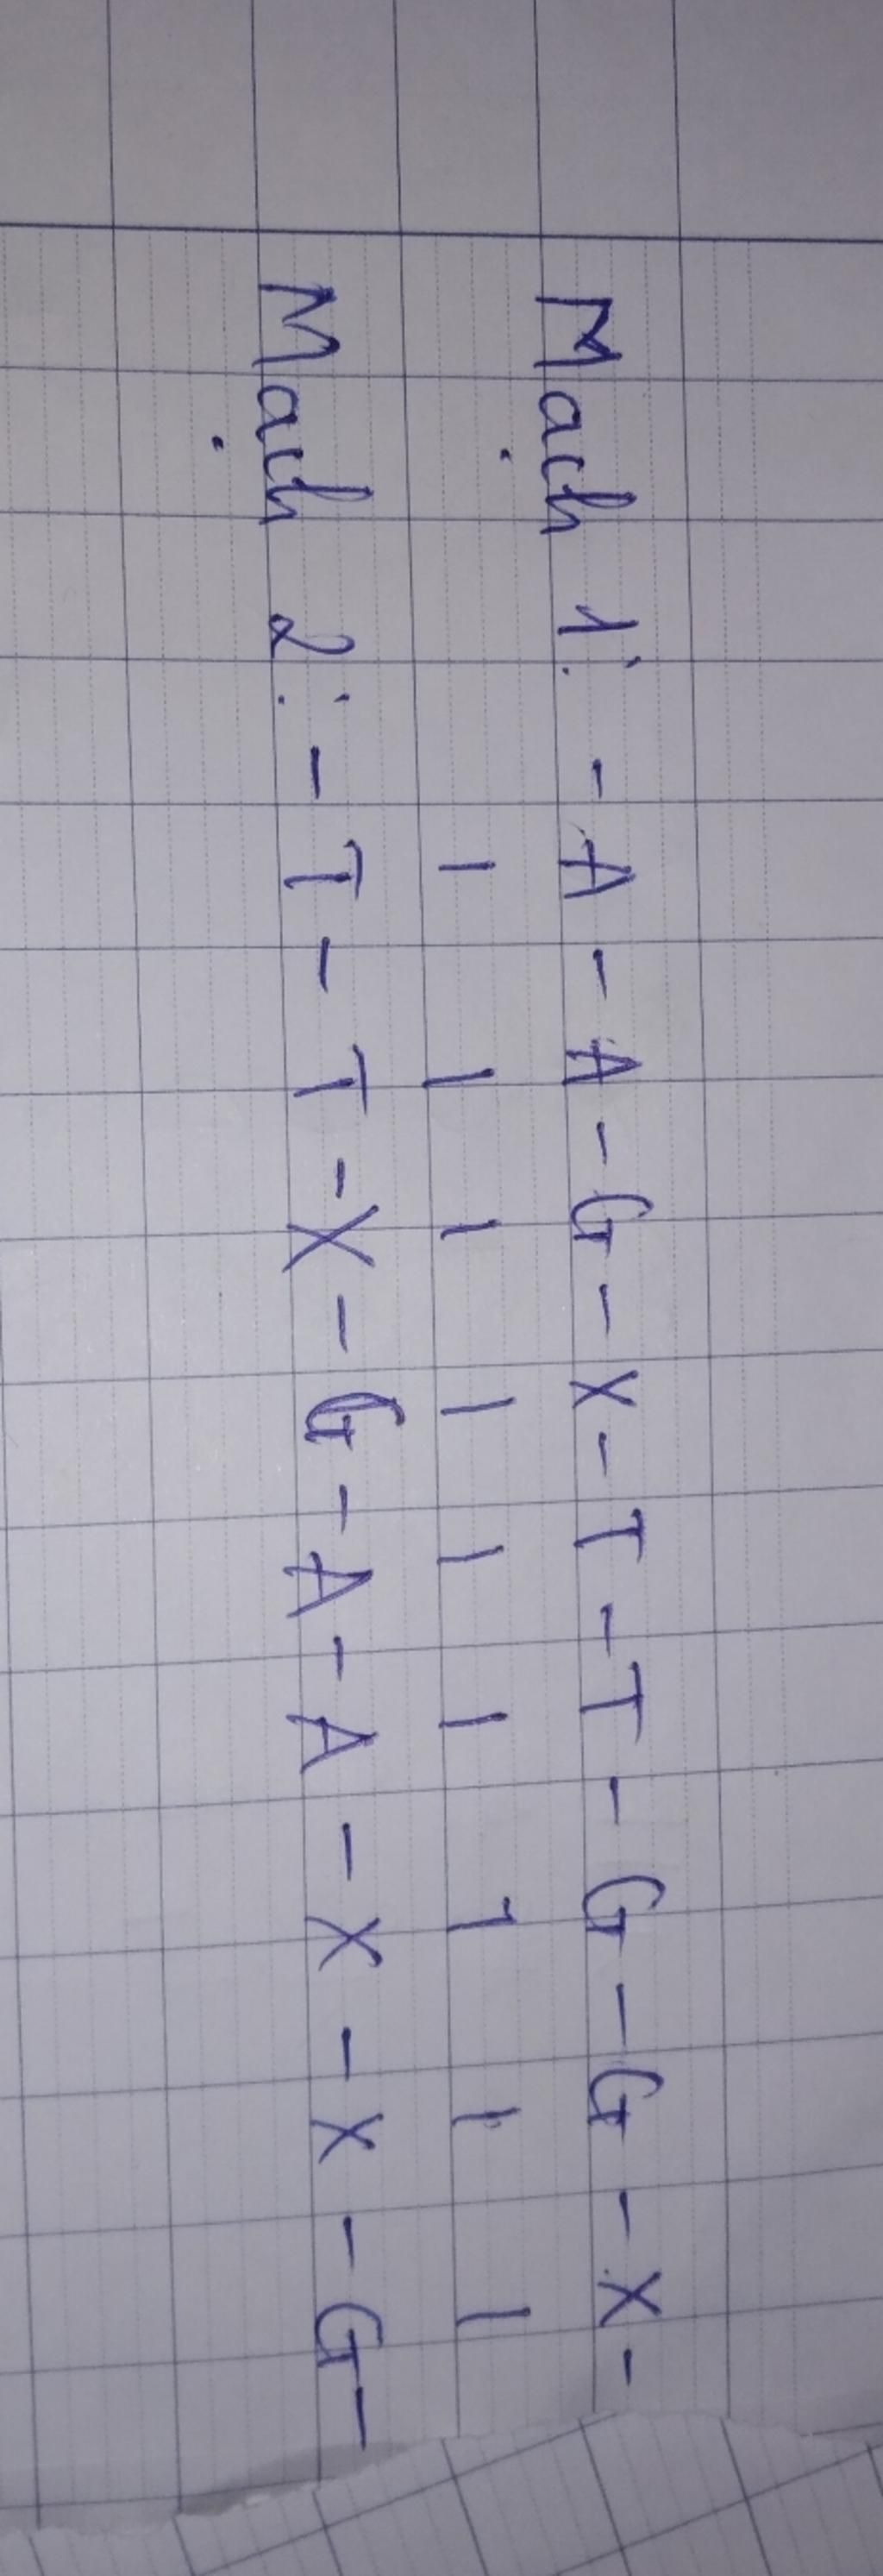 Mạch 1: - A - A - G - X - T - T - G - G - X -
| | | | | | | | |
Mạch 2: - T - T - X - G - A - A - X - X - G -